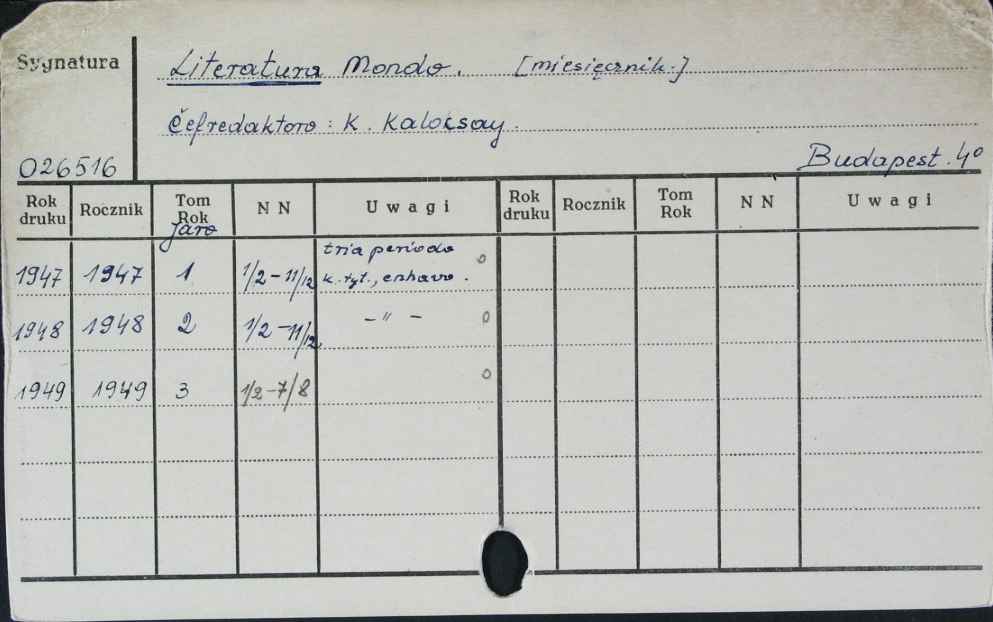 Sygnatura
Literatura Mondo. [miesięcznik.]
Ĉefredaktoro: K. Kalocsay.
026516
Budapest. 4°
Rok druku Rocznik Tom Rok Jaro N N Uwagi Rok druku Rocznik Tom Rok N N Uwagi
tria periodo
1947 1947 1 1/2-11/12 k. tyt., enhavo. o
1948 1948 2 1/2-11/12. -"- o
1949 1949 3 1/2-7/8 o